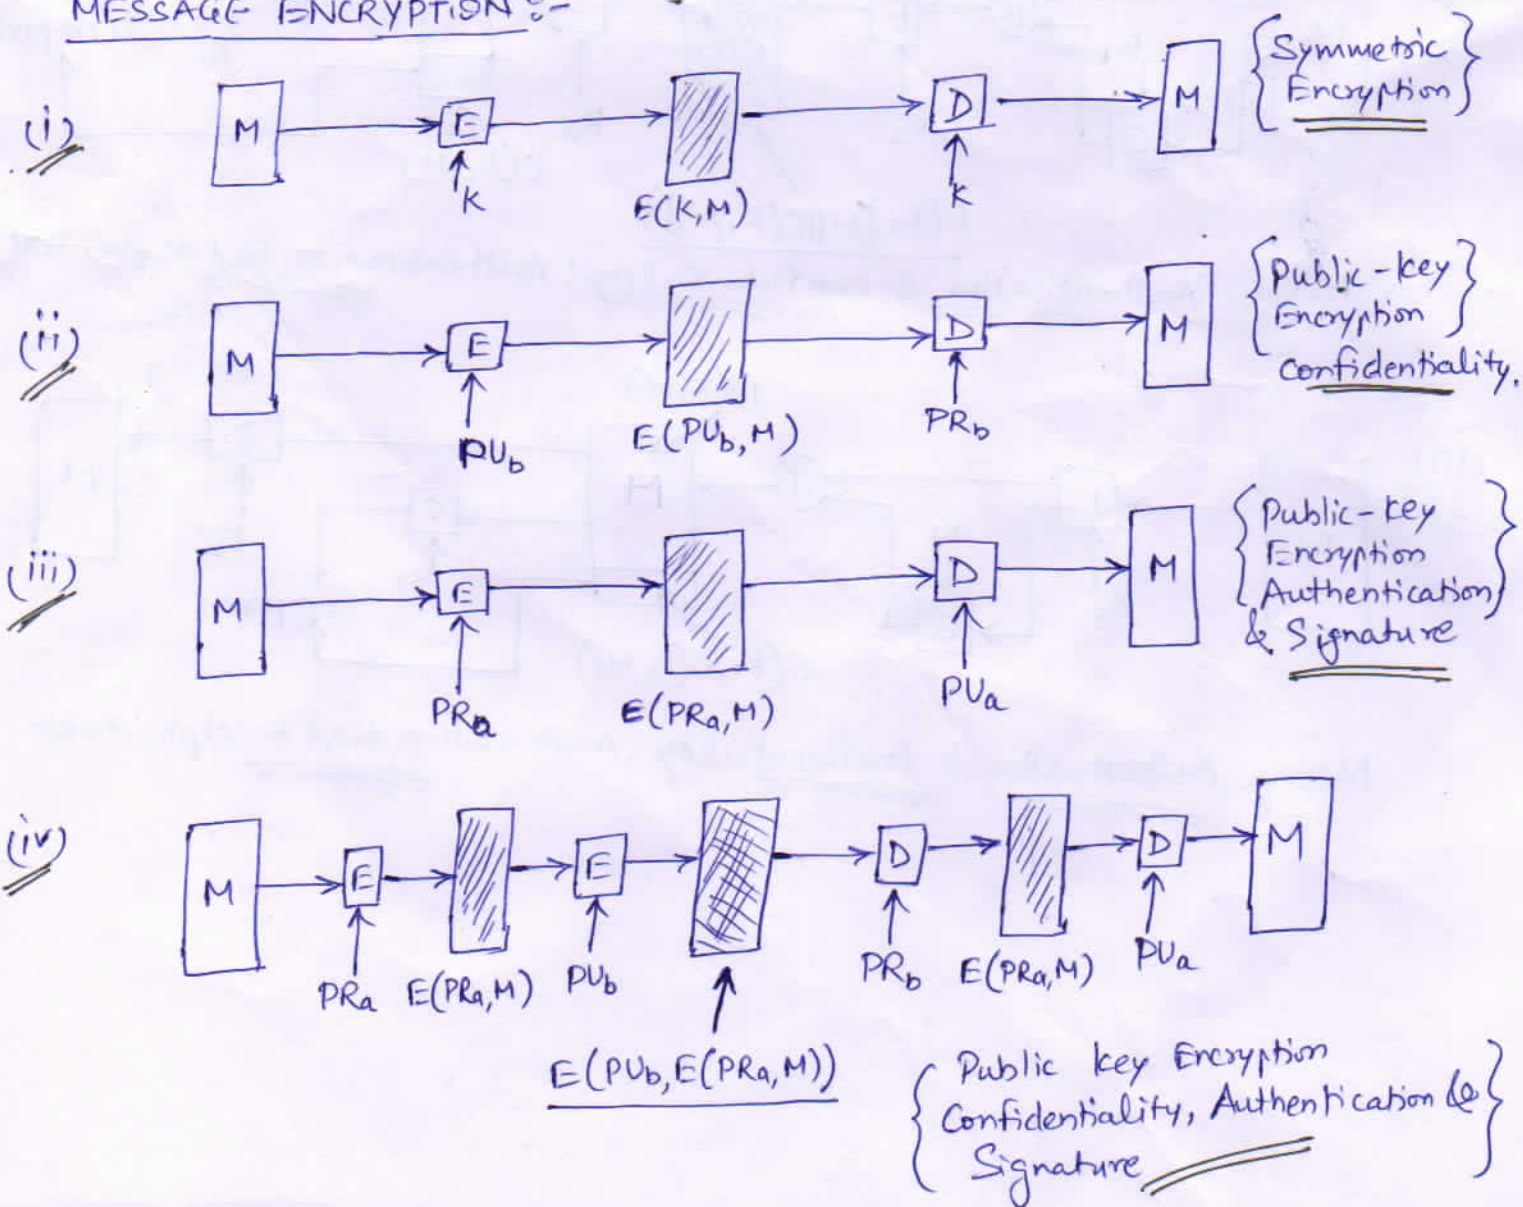 MESSAGE ENCRYPTION :-
(i) M E D M
K E(K,M) K
{Symmetric
Encryption}
(ii) M E D M
PUb E(PUb,M) PRb
{Public-key
Encryption}
Confidentiality.
(iii) M E D M
PRa E(PRa,M) PUa
{Public-key
Encryption
Authentication}
& Signature
(iv) M E E D D M
PRa E(PRa,M) PUb PRb E(PRa,M) PUa
E(PUb,E(PRa,M))
{Public key Encryption
Confidentiality, Authentication &
Signature}